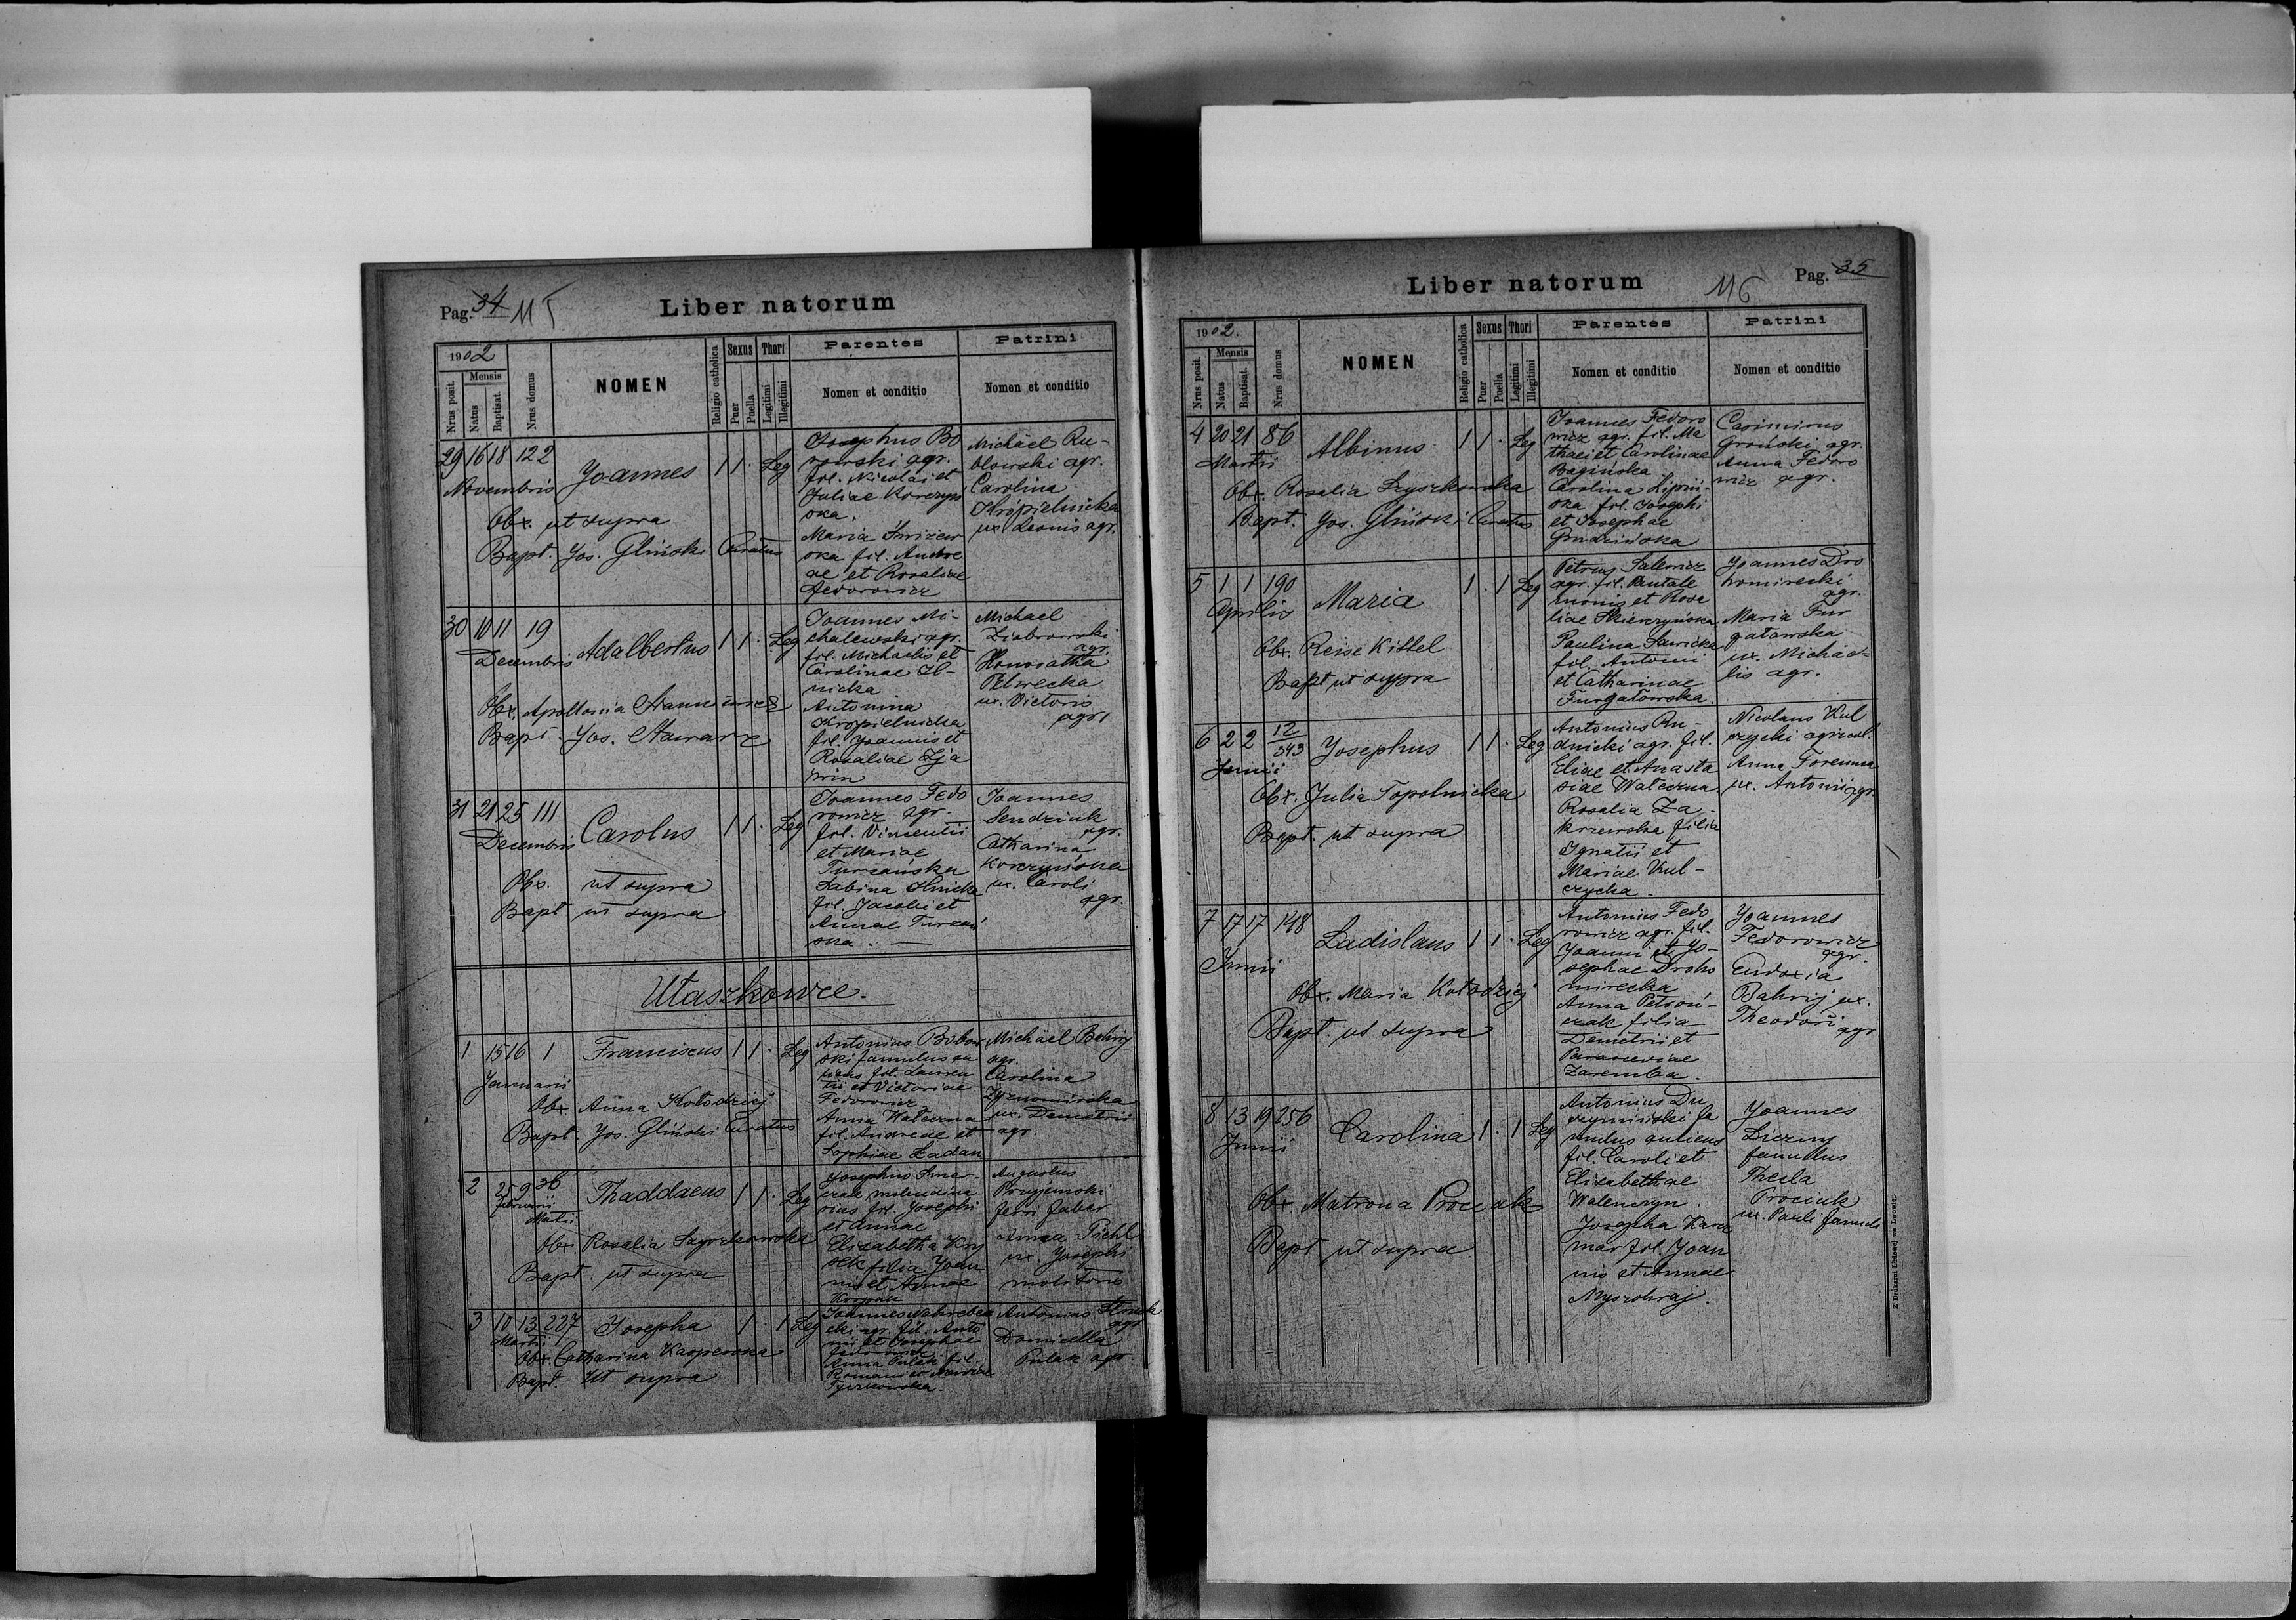 Pag. 34 115
Liber natorum
1902
Nrus posit.
Mensis
Natus
Baptisat.
Nrus domus
NOMEN
Religio catholica
Sexus
Puer
Puella
Thori
Legitimi
Illegitimi
Parentes
Nomen et conditio
Patrini
Nomen et conditio
29 16 18 122
Novembris
Joannes
1 1 · Leg
Obx. ut supra
Bapt. Jos. Gliński Curatus
Josephus Bo
rowski agr.
fil. Nicolai et
Juliae Korczyn
ska.
Maria
ska fil. Andre
ae et Rosaliae
Fedorowicz
Michael Ru-
dkowski agr.
Carolina
Kropielnicka
ux. Leonis agr.
30 10 11 19
Decembris
Adalbertus
1 1 · Leg
Obx. Apollonia
Bapt. Jos.
Joannes Mi-
chalewski agr.
fil. Michaelis et
Carolinae Il-
nicka
Antonina
Kropielnicka
fil. Joannis et
Rosaliae Zja
win
Michael
Ziobrowski
agr.
Honoratha
ux. Victoris
agr.
31 21 25 111
Decembris
Carolus
1 1 · Leg
Obx. ut supra
Bapt ut supra
Joannes Fedo
rowicz agr.
fil. Vincentii
et Mariae
Turzanska
Sabina Ilnicka
fil. Jacobi et
Annae Turzań
ska.
Joannes
Sendziuk
agr.
Catharina
Korczyńska
ux. Caroli
agr.
Ułaszkowce.
1 15 16 1
Januarii
Franciscus
1 1 · Leg
Obx. Anna Kołodziej
Bapt. Jos. Gliński Curatus
Antonius Bobow
ski famulus au
licus fil. Lauren
tii et Victoriae
Fedorowicz
Anna Wateczna
fil. Andreae et
Sophiae Zadan
Michael Bahrij
agr.
Carolina
ux. Demetrii
agr.
2 25 9 36
Februarii
Martii
Thaddaeus
1 1 · Leg
Obx. Rosalia Szyszkowska
Bapt. ut supra
Josephus
fil. Josephi
et Annae
Elisabetha Kry
sek filia Joan
nis et Annae
Augustus
ferri faber
Anna Pichl
ux. Josephi
molitoris
3 10 13 227
Martii
Josepha
1 · 1 Leg
Obx. Catharina Kasperska
Bapt. Ut supra
Joannes
cki agr. fil. Anto
nii et Josephae
Fedorowicz
Anna Pulak fil.
Romani et Mariae
Antonius
agr
Domicella
Pulak agr
Liber natorum
116
Pag. 35
1902.
Nrus posit.
Mensis
Natus
Baptisat.
Nrus domus
NOMEN
Religio catholica
Sexus
Puer
Puella
Thori
Legitimi
Illegitimi
Parentes
Nomen et conditio
Patrini
Nomen et conditio
4 20 21 86
Martii
Albinus
1 1 · Leg
Obx. Rosalia Szyszkowska
Bapt. Jos. Gliński Curatus
Joannes Fedoro
wicz agr. fil. Ma
thaei et Carolinae
Bagińska
Carolina Lipiń-
ska fil. Josephi
et Josephae
Grudzińska
Casimirus
Groński agr.
Anna Fedoro
wicz agr.
5 1 1 190
Aprilis
Maria
1 · 1 Leg
Obx. Reise Kittel
Bapt ut supra
Petrus Salewicz
agr. fil. Pantale
monis et Rosa
liae
Paulina Sawicka
fil. Antonii
et Catharinae
Furgałowska.
Joannes Dro
homirecki
agr.
Maria Fur
gałowska
ux. Michae-
lis agr.
6 2 2 12/343
Junii
Josephus
1 1 · Leg
Obx. Julia Topolnicka
Bapt. ut supra
Antonius Ru-
dnicki agr. fil.
Eliae et Anasta
siae Wateczna
Rosalia Za-
krzewska filia
Ignatii et
Mariae Kul-
czycka.
Nicolaus Kul
czycki
Anna Foremna
ux. Antonii agr.
7 17 17 148
Junii
Ladislaus
1 1 · Leg
Obx. Maria Kołodziej
Bapt. ut supra
Antonius Fedo
rowicz agr. fil.
Joanni et Jo-
sephae Droho
mirecka
Anna Petroń-
czak filia
Demetrii et
Parasceviae
Zaremba.
Joannes
Fedorowicz
agr.
Eudoxia
Bahrij ux.
Theodori agr
8 13 19 256
Junii
Carolina
1 · 1 Leg
Obx. Matrona Prociuk
Bapt ut supra
Antonius Du
czymiński fa
mulus aulicus
fil. Caroli et
Elisabethae
Walenczyn.
Josepha Kacz
mar fil. Joan
nis et Annae
Myszohraj.
Joannes
famulus
Thecla
Prociuk
ux. Pauli famuli
Z Drukarni Ludowej we Lwowie.